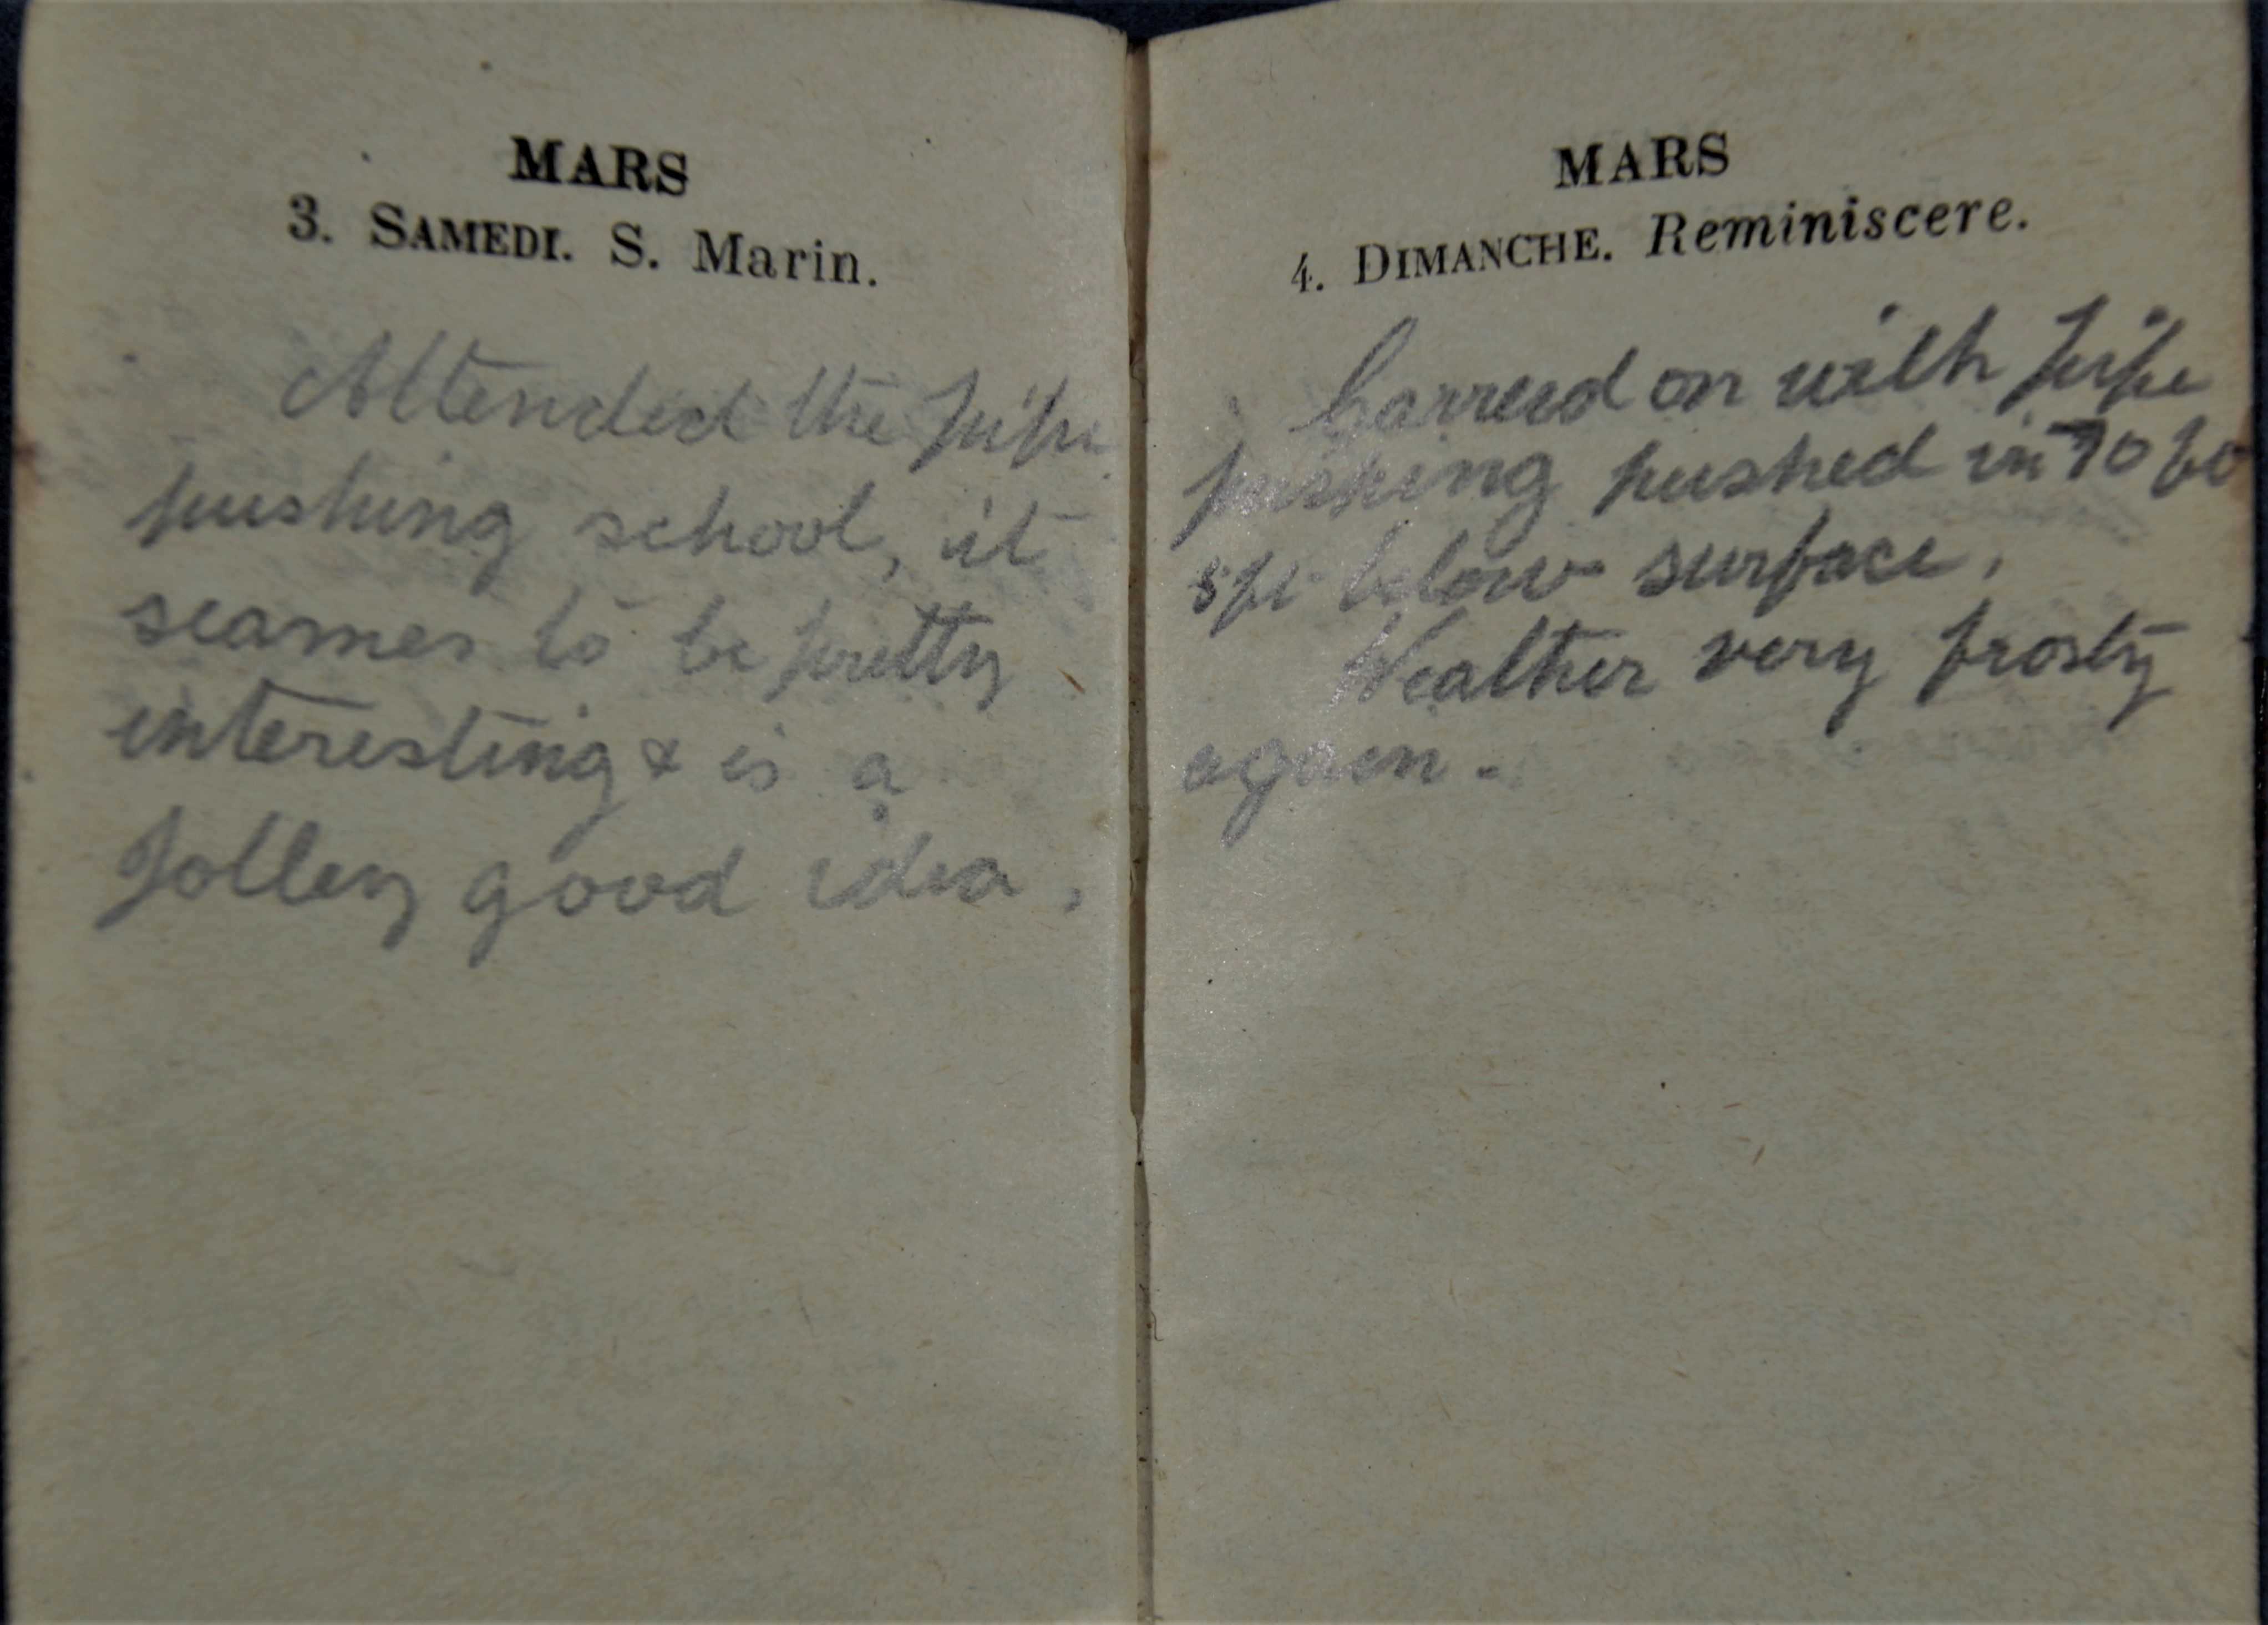 MARS
3. SAMEDI. S. Marin.
Attended the pipe
pushing school, it
seames to be pretty
interesting & is a
Jolley good idea.
MARS
4. DIMANCHE. Reminiscere.
Carreid on with pipe
pushing pushed in 70 fo
5ft below surface.
Weather very frosty
again.